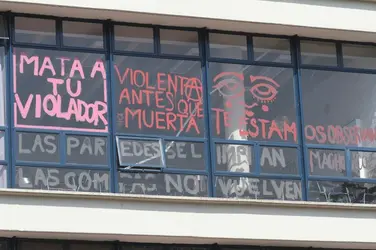 MATA A
TU
VIOLADOR
VIOLENTA
ANTES QUE
MUERTA
TE ESTAMOS OBSERVA
LAS PAREDES SE LIMPIAN
LAS COM NO VUELVEN